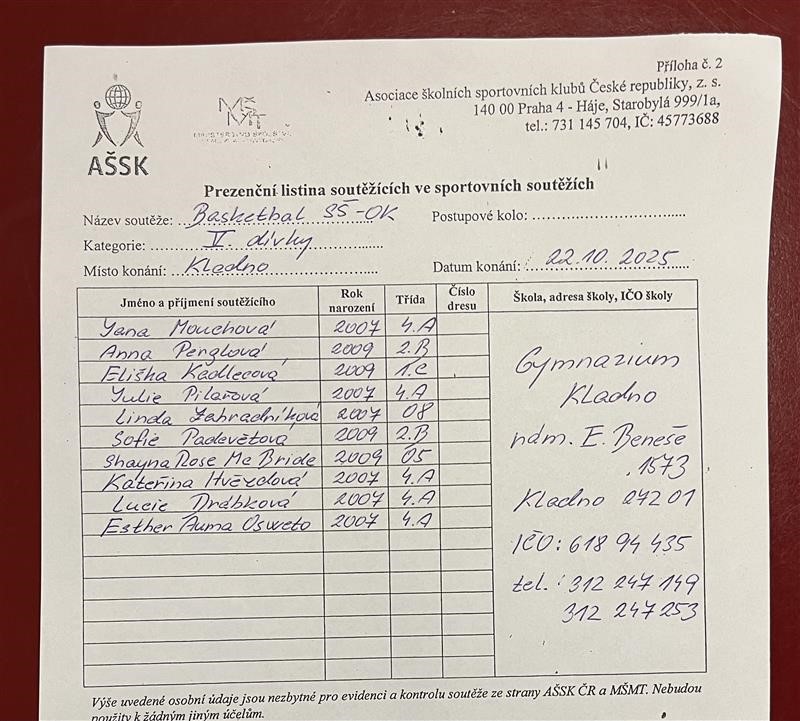 Příloha č. 2
Asociace školních sportovních klubů České republiky, z. s.
140 00 Praha 4 - Háje, Starobylá 999/1a,
tel.: 731 145 704, IČ: 45773688
AŠSK
Prezenční listina soutěžících ve sportovních soutěžích
Název soutěže: Basketbal SŠ-OK Postupové kolo:
Kategorie: V. dívky
Místo konání: Kladno Datum konání: 22.10. 2025
Jméno a příjmení soutěžícího Rok narození Třída Číslo dresu Škola, adresa školy, IČO školy
Jana Mouchová 2007 4.A
Anna Perglová 2009 2.B
Eliška Kadlecová 2009 1.C
Julie Pilařová 2007 4.A
Linda Zahradníková 2007 O8
Sofie Padevětová 2009 2.B
Shayna Rose Mc Bride 2009 O5
Kateřina Hvězdová 2007 4.A
Lucie Drábková 2007 4.A
Esther Auma Osweto 2007 4.A
Gymnazium
Kladno
nám. E. Beneše
1573
Kladno 272 01
IČO: 618 94 435
tel.: 312 247 149
312 247 253
Výše uvedené osobní údaje jsou nezbytné pro evidenci a kontrolu soutěže ze strany AŠSK ČR a MŠMT. Nebudou
použity k žádným jiným účelům.